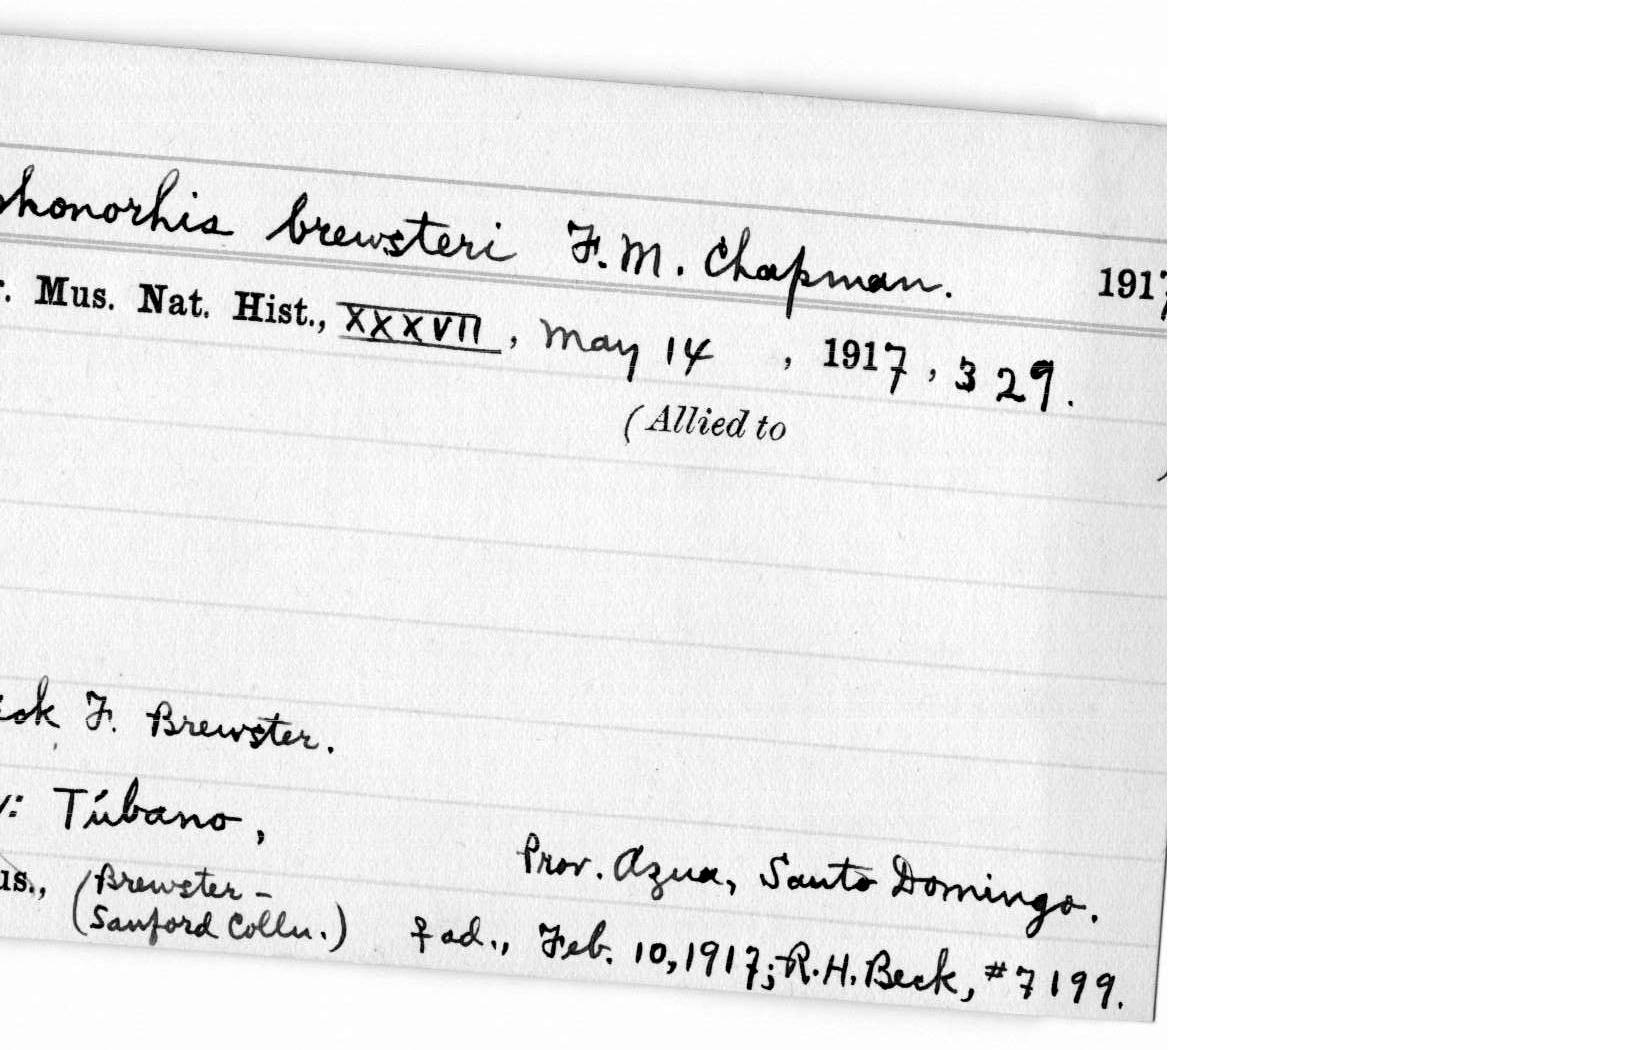 phonorhis brewsteri F. M. Chapman. 1917
r. Mus. Nat. Hist., XXXVII, May 14, 1917, 329.
(Allied to )
ick F. Brewster.
y: Túbano, Prov. Azua, Santo Domingo.
us., (Brewster-
Sanford Colln.) ♀ ad., Feb. 10, 1917; R. H. Beck, #7199.